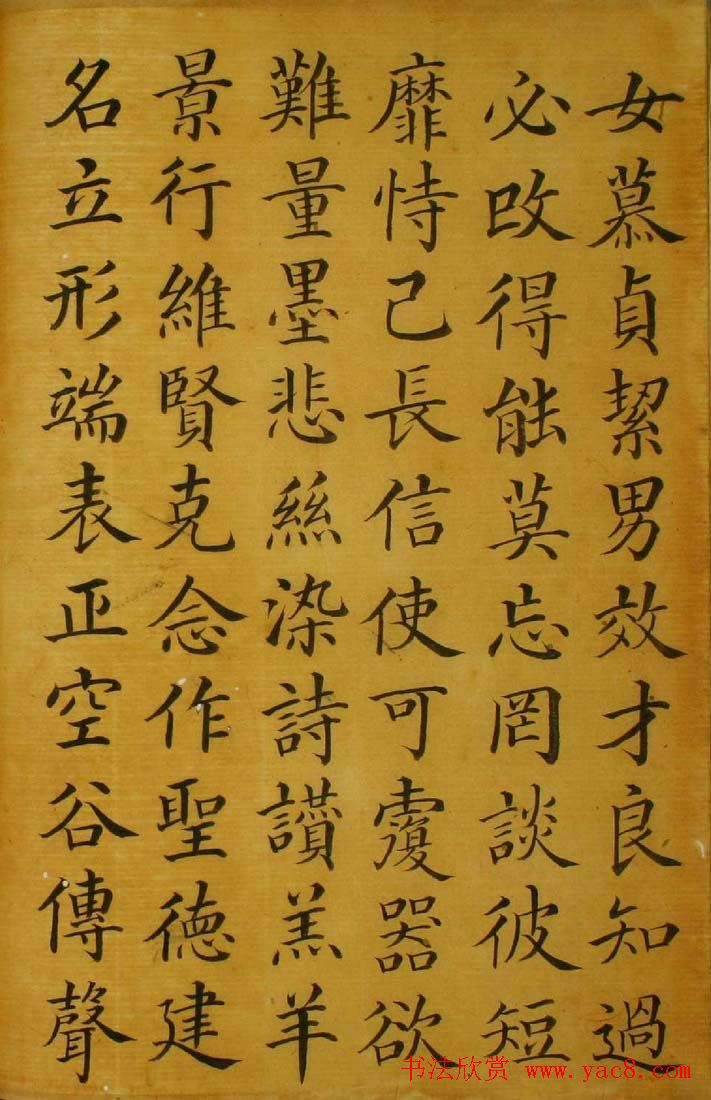 女慕貞絜男效才良知過
必改得能莫忘罔談彼短
靡恃己長信使可覆器欲
難量墨悲絲染詩讃羔羊
景行維賢克念作聖德建
名立形端表正空谷傳聲
书法欣赏 www.yac8.com